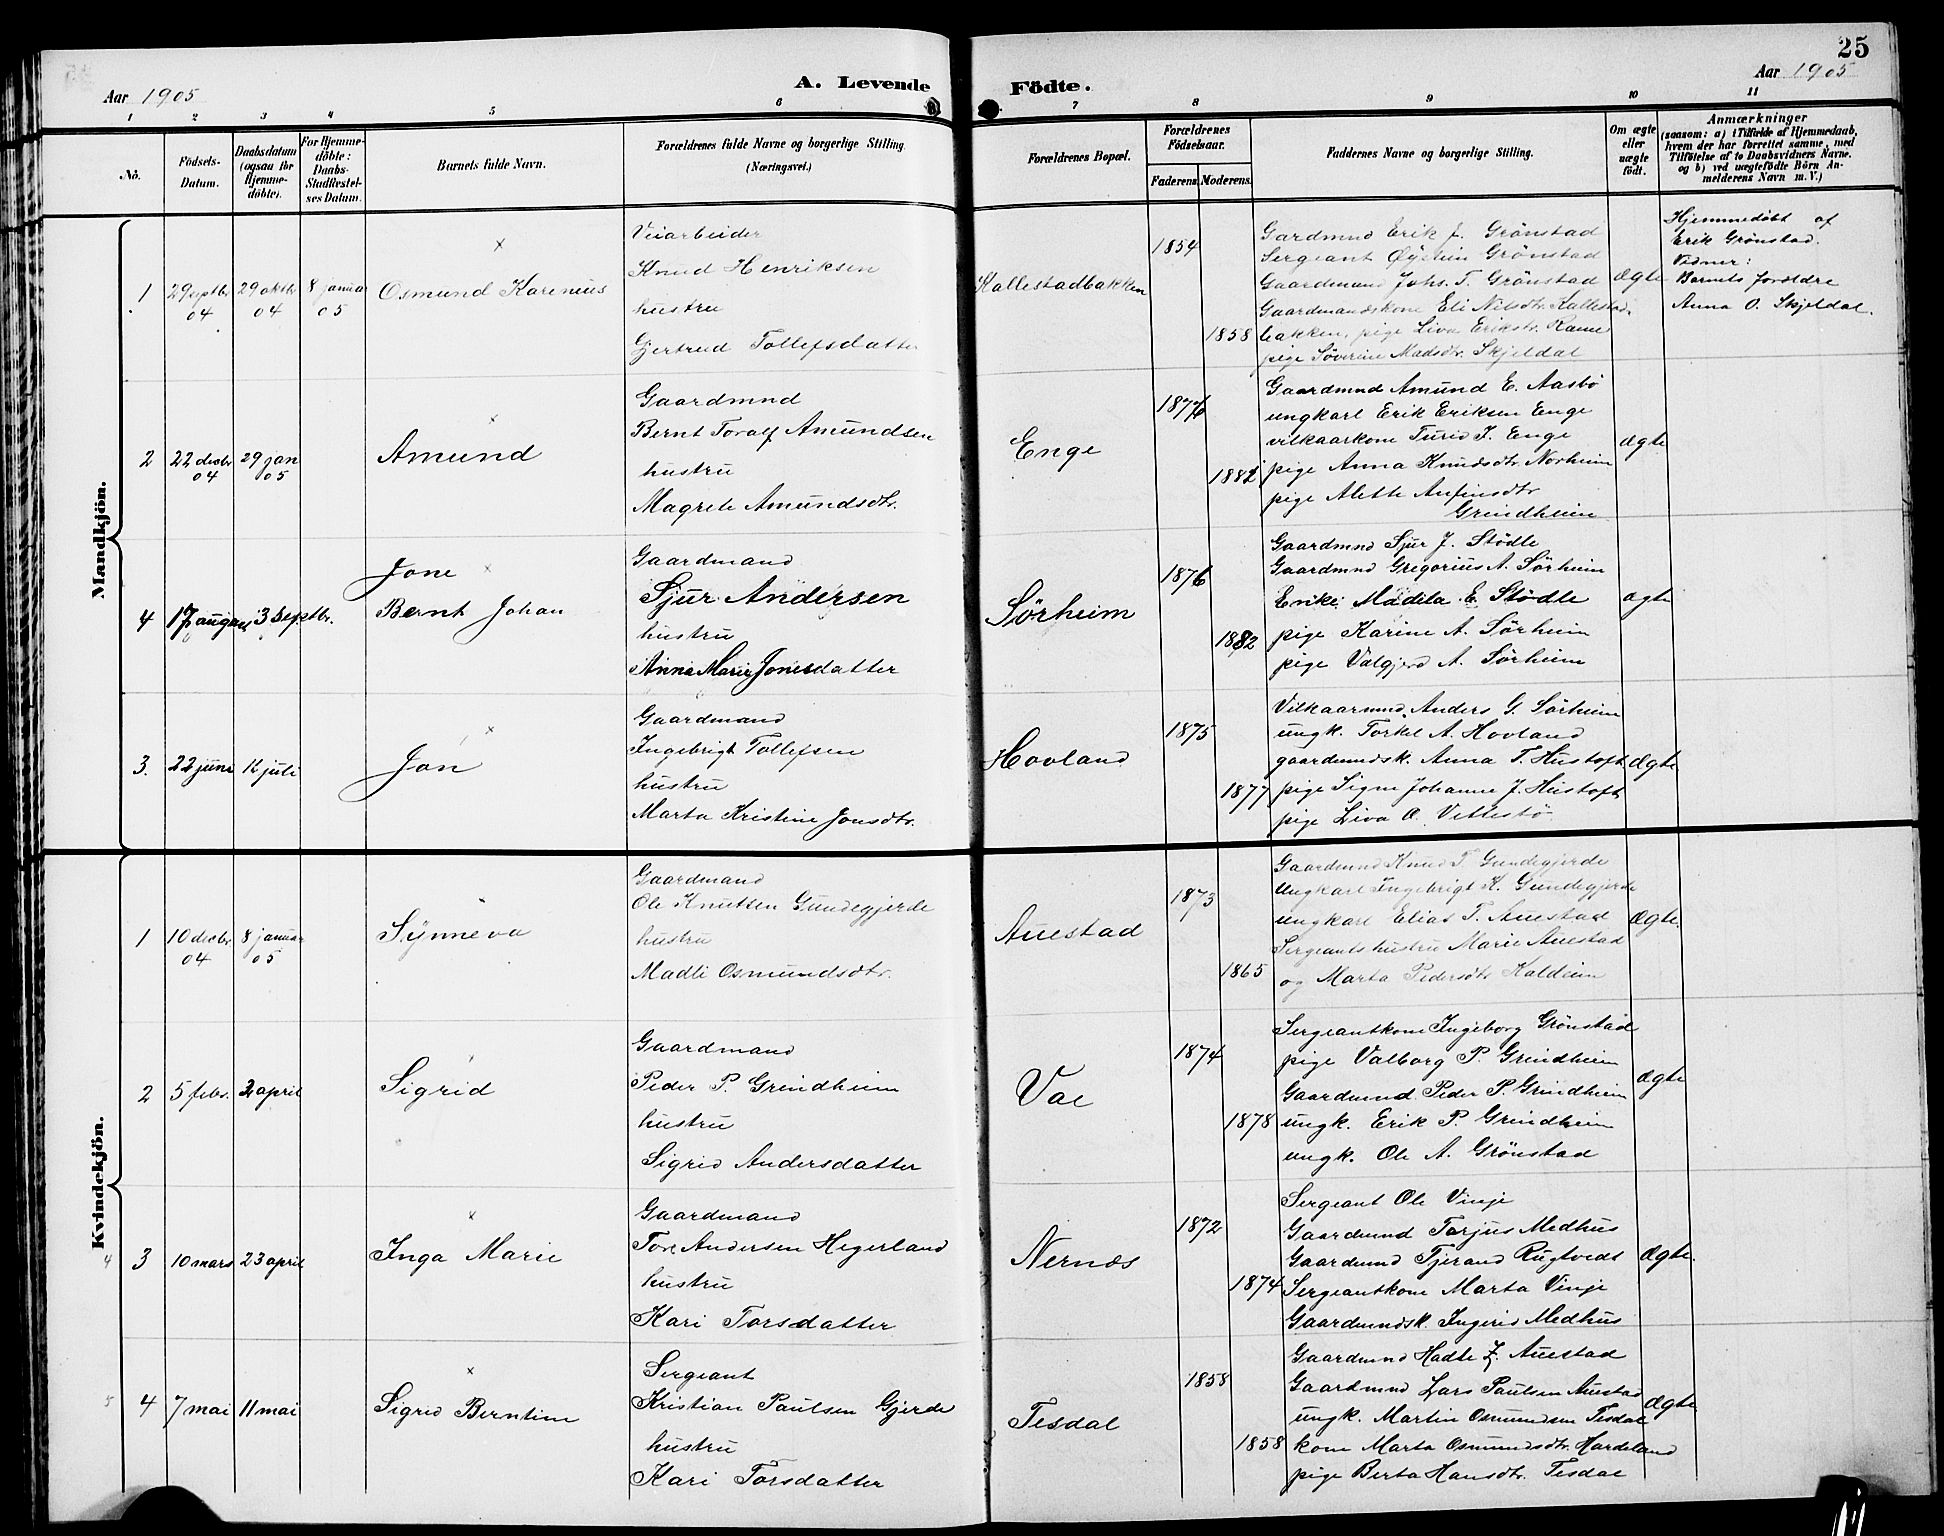 25
Aar 1905
A. Levende Födte.
Aar 1905
1 2 3 4 5 6 7 8 9 10 11
No.
Födsels-
Datum.
Daabsdatum
(ogsaa for
Hjemme-
döbte).
For Hjemme-
döbte:
Daabs-
Stadfæstel-
ses Datum.
Barnets fulde Navn.
Forældrenes fulde Navne og borgerlige Stilling.
(Næringsvei.)
Forældrenes Bopæl.
Forældrenes
Födselsaar.
Faderens.
Moderens.
Faddernes Navne og borgerlige Stilling.
Om ægte
eller
uægte
födt.
Anmærkninger
(saasom: a) i Tilfælde af Hjemmedaab,
hvem der har forrettet samme, med
Tilföielse af to Daabsvidners Navne.
og b) ved uægtefödte Börn An-
melderens Navn m. V.)
Mandkjön.
1
29 septbr
04
29 oktbr
04
8 januar
05
Osmund Karenius
Veiarbeider
Knud Henriksen
hustru
Gjertrud Tollefsdatter
Kallestadbakken
1854
1858
Gardmnd Erik J. Grönstad
Sergeant Øystein Grönstad
Gaardmand Johs. T. Grönstad
Gaardmandskone Eli Nilsdtr. Kallestad-
bakken, pige Liva Eriksdtr. Rame
pige Söverine Madsdtr. Skjeldal
ægte
Hjemmedöbt af
Erik Grönstad.
Vidner:
Barnets forældre
Anna O. Skjeldal.
2
22 decbr
04
29 jan
05
Amund
Gaardmnd
Bernt Toralf Amundsen
hustru
Magrete Amundsdtr.
Enge
1876
1882
Gaardmnd Amund E. Aasbö
ungkarl Erik Eriksen Enge
vilkaarkone Turid I. Enge
pige Anna Knudsdtr Norheim
pige Alette Anfinsdtr
Grindheim
ægte
4
17 august
3 Septbr.
Jone
Bernt Johan
Gaardmand
Sjur Andersen
hustru
Anna Marie Jonesdatter
Sörheim
1876
1882
Gaardmnd Sjur J. Stödle
Gaardmnd Gregorius A. Sörheim
Enke Madela E. Stödle
pige Karine A. Sörheim
pige Valgjerd A. Sörheim
ægte
3.
22 juni
12 juli
Jon
Gaardmand
Ingebrigt Tollefsen
hustru
Marta Kristine Jonsdtr.
Hovland
1875
1877
Vilkaarmnd. Anders G. Sörheim
ungk. Torkel A. Hovland
gaardmndsk. Anna T. Hustoft
pige Signe Johanne J. Hustoft
pige Liva O. Vettestö
ægte
Kvindekjön.
1
10 decbr
04
8 januar
05
Synneva
Gaardmand
Ole Knutsen Gundegjerde
hustru
Madli Osmundsdtr.
Auestad
1873
1865
Gaardmnd Knud T. Gundegjerde
Ungkarl Ingebrigt K. Gundegjerde
ungkarl Elias T. Auestad
Sergeants hustru Marie Auestad
og Marta Pedersdtr Kaldheim
ægte.
2
5 febr.
2 april
Sigrid
Gaardmand
Peder P. Grindheim
hustru
Sigrid Andersdatter
Vae
1874
1878
Sergeantkone Ingeborg Grönstad
pige Valborg P. Grindheim
Gaardmnd Peder P. Grindheim
ungk. Erik P. Grindheim
ungk. Ole A. Grönstad
ægte
4
3
10 mars
23 april
Inga Marie
Gaardmand
Tore Andersen Hegerland
hustru
Kari Torsdatter
Nernæs
1872
1874
Sergeant Ole Vinje
Gaardmnd Torjus Medhus
Gaardmnd Tjerand Rugtvedt
Sergeantkone Marta Vinje
Gaardmndsk. Ingerid Medhus
ægte.
5
4
7 mai
11 mai
Sigrid Berntine
Sergeant
Kristian Paulsen Gjerde
hustru
Kari Torsdatter
Tesdal
1858
1858
Gaardmnd Hadle Z. Auestad
Gaardmnd Lars Paulsen Auestad
ungk. Martin Osmundsen Tesdal
kone Marta Osmundsdtr. Hardeland
pige Berta Hansdtr. Tesdal
ægte